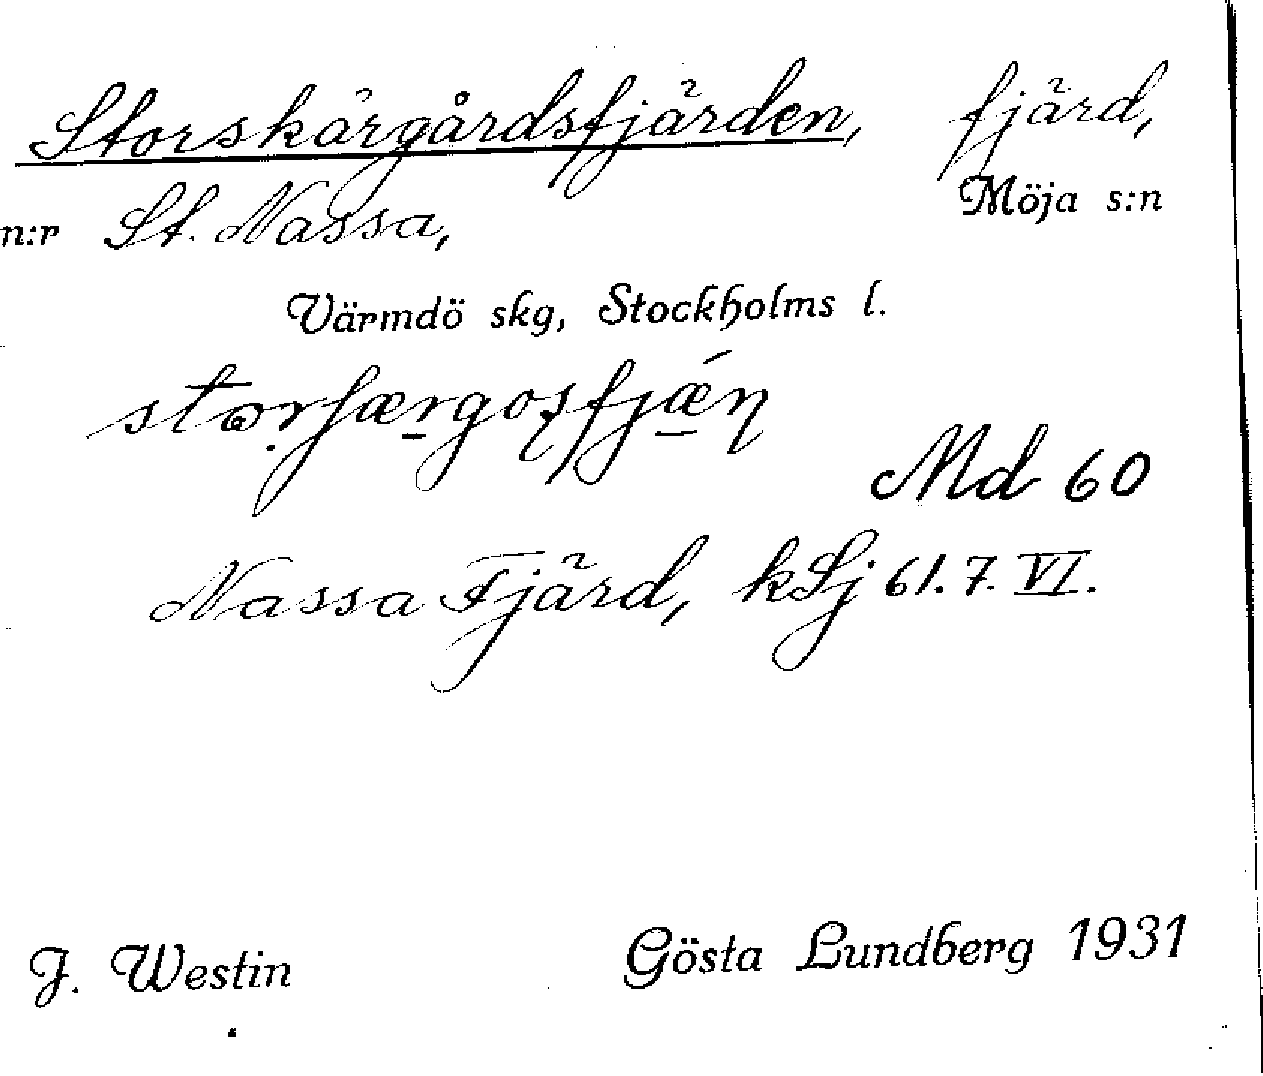 Storskärgårdsfjärden, fjärd,
Möja s:n
n:r St. Nassa,
Värmdö skg, Stockholms l.
Md 60
Nassa Fjärd, kSj 61. 7. VI.
J. Westin Gösta Lundberg 1931